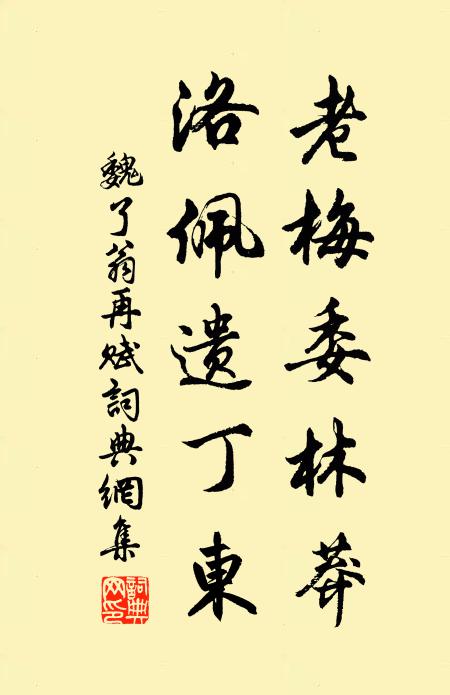 老梅委林莽
洛佩遺丁東
魏了翁再賦詞典網集
詞典网印